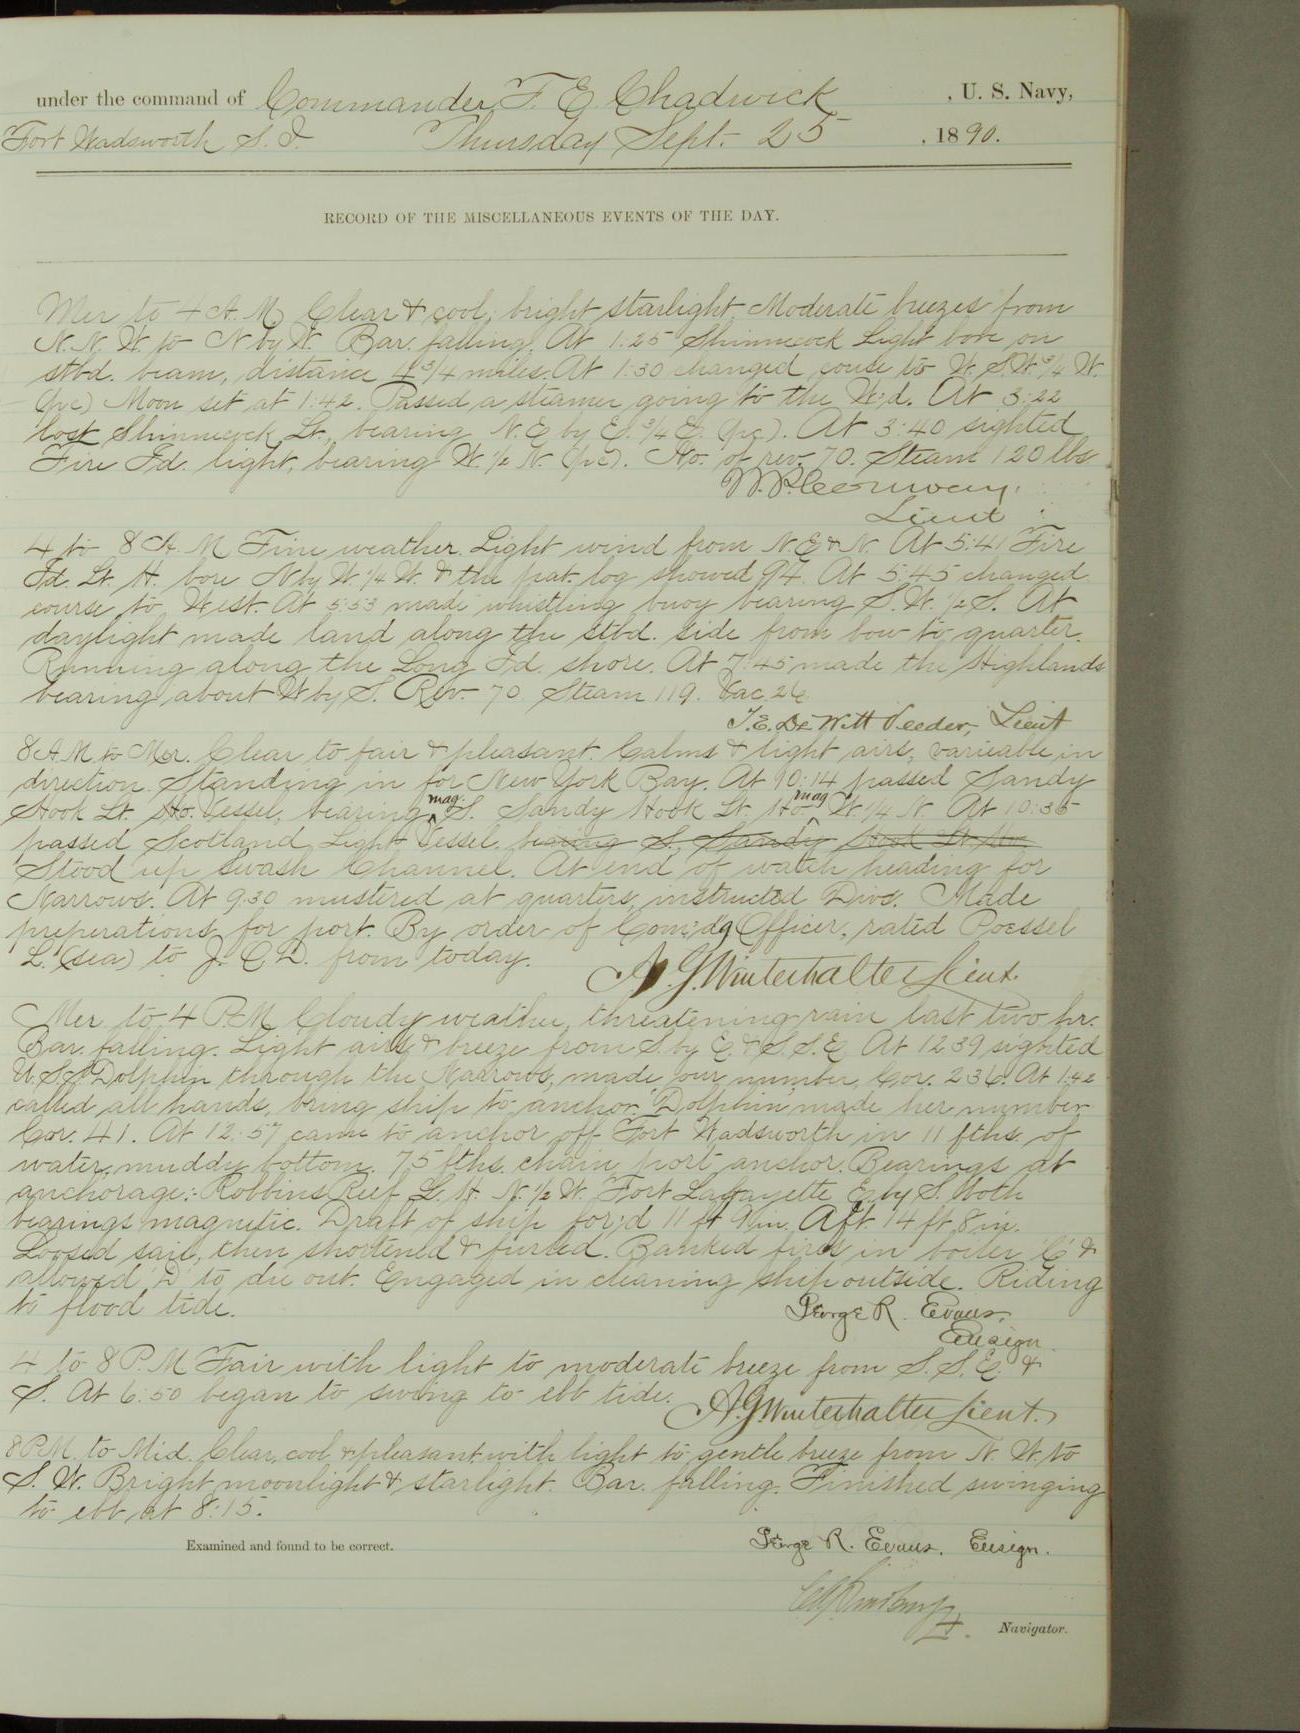 under the command of Commander F. E. Chadwick , U. S. Navy,
Fort Wadsworth S. I. Thursday Sept. 25 , 1890.
RECORD OF THE MISCELLANEOUS EVENTS OF THE DAY.
Mer to 4 A. M. Clear & cool, bright starlight. Moderate breezes from
N. N. W. to N by W. Bar. falling. At 1:25 Shinnecock Light bore on
stbd. beam, distance 4 3/4 miles. At 1:30 changed couse to W. S. W 3/4 W.
(pc) Moon set at 1:42. Passed a steamer going to the W'd. At 3:22
lost Shinnecock Lt., bearing N. E by E. 3/4 E. (pc). At 3:40 sighted
Fire Id. light, bearing W. 1/2 N. (pc). No. of rev. 70. Steam 120 lbs
W. P. Conway,
Lieut
4 to 8 A. M Fine weather. Light wind from N. E & N. At 5:41 Fire
Id. Lt. H. bore N by W 1/4 W. & the pat. log showed 94. At 5:45 changed
course to West. At 5:53 made whistling buoy bearing S. W. 1/2 S. At
daylight made land along the stbd. side from bow to quarter.
Running along the Long Id. shore. At 7:45 made the Highlands
bearing about W by S. Rev. 70 Steam 119. Vac. 26
T. E. DeWitt Veeder, Lieut
8 A.M. to Mer. Clear to fair & pleasant. Calms & light airs, varieable in
direction. Standing in for New York Bay. At 10:14 passed Sandy
Hook Lt. Ho. Vessel, bearing mag. S. Sandy Hook Lt. Ho. mag W. 1/4 N. At 10:36
passed Scotland Light Vessel bearing S. Sandy Hook Lt. Ho.
Stood up Swash Channel. At end of watch heading for
Narrows. At 9:30 mustered at quarters, instructed Divs. Made
preperations for port. By order of Com'd'g Officer, rated Poessel
L. (sea) to J. C. D. from today.
A. G. Winterhalter Lieut.
Mer to 4 P.M Cloudy weather, threatening rain last two hr.
Bar. falling. Light airs & breeze from S. by E. & S. S. E. At 12:39 sighted
U.S.S. "Dolphin" through the Narrows, made our number, Cor. 236. At 1:42
called all hands, bring ship to anchor. "Dolphin" made her number
Cor. 41. At 12:57 came to anchor off Fort Wadsworth in 11 fths. of
water, muddy bottom. 75 fths. chain port anchor. Bearings at
anchorage:- Robbins Reef L. H. N. 1/2 W. Fort Lafayette E. by S. Both
bearings magnetic. Draft of ship for'd 11 ft 9 in. Aft 14 ft 8 in.
Loosed sail, then shortened & furled. Banked fires in boiler "C" &
allowed "D" to die out. Engaged in cleaning ship outside. Riding
to flood tide.
George R. Evans,
Ensign.
4 to 8 P. M Fair with light to moderate breeze from S. S. E. &
S. At 6:50 began to swing to ebb tide.
A. G. Winterhalter Lieut.
8 P.M. to Mid. Clear, cool & pleasant with light to gentle breeze from N. W. to
S. W. Bright moonlight & starlight. Bar. falling. Finished swinging
to ebb at 8:15.
George R. Evans. Ensign.
Examined and found to be correct.
Navigator.